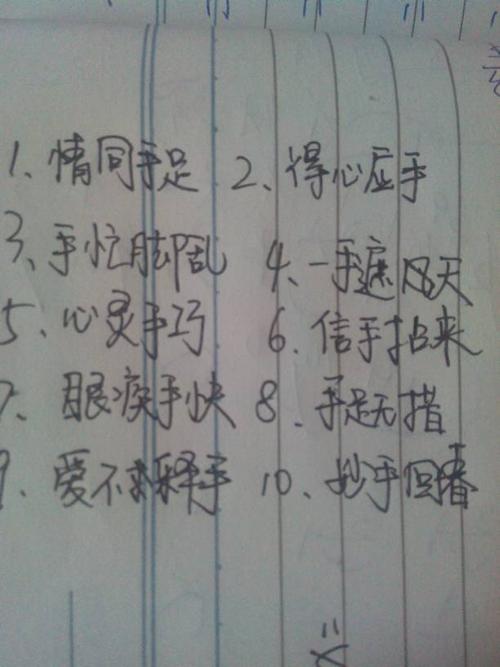 1、情同手足 2、得心应手
3、手忙脚乱 4、一手遮天
5、心灵手巧 6、信手拈来
7、眼疾手快 8、手足无措
9、爱不释手 10、妙手回春